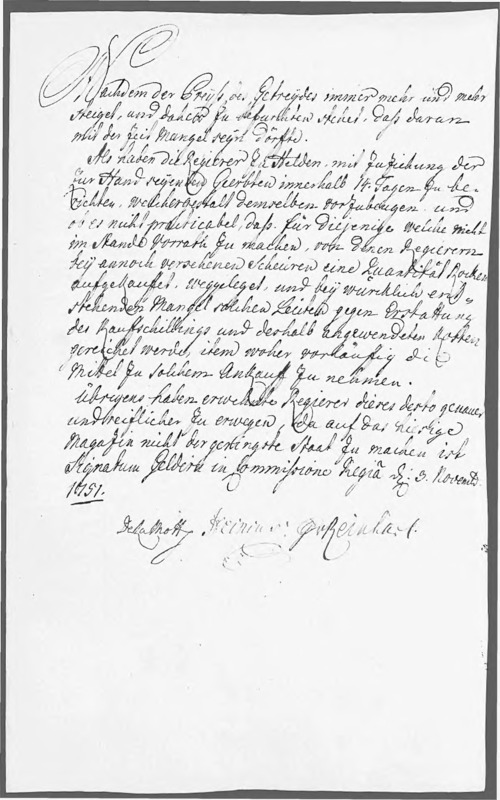 Nachdem der Preiß des Getreydes immer mehr und mehr
steiget, und daher zu befürchten stehet, daß daran
mit der Zeit Mangel seyn dörffte.
Als haben die Regierer zu Helden, mit Zuziehung der
zur Hand seyenden Geerbten innerhalb 14 Tagen zu be-
richten, welchergestalt demselben vorzubeugen, und
ob es nicht practicabel, daß für diejenige welche nicht
im Stande Vorrath zu machen, von denen Regierern
bey annoch versehenen Scheuren eine Quantität Rocken
aufgekauffet, weggeleget, und bey würcklich ent-
stehenden Mangel solchen Leuten gegen Erstattung
des Kaufschillings und deshalb angewendeten Kosten
gereichet werde, item woher vorläufig die
Mittel zu solchem Ankauf zu nehmen.
Übrigens haben erwehnte Regierer dieses desto genauer
und reiflicher zu erwegen, da auf das hiesige
Magazin nicht der geringste Staat zu machen ist
Signatum Geldern in Commissione Regiâ d. 3. Novemb.
1751.
de la Motte Heinius v Reinhart.